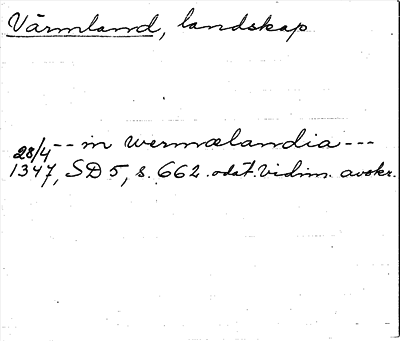 Värmland, landskap
28/4 -- in wermælandia ---
1347, SD 5, s. 662. odat. vidim. avskr.